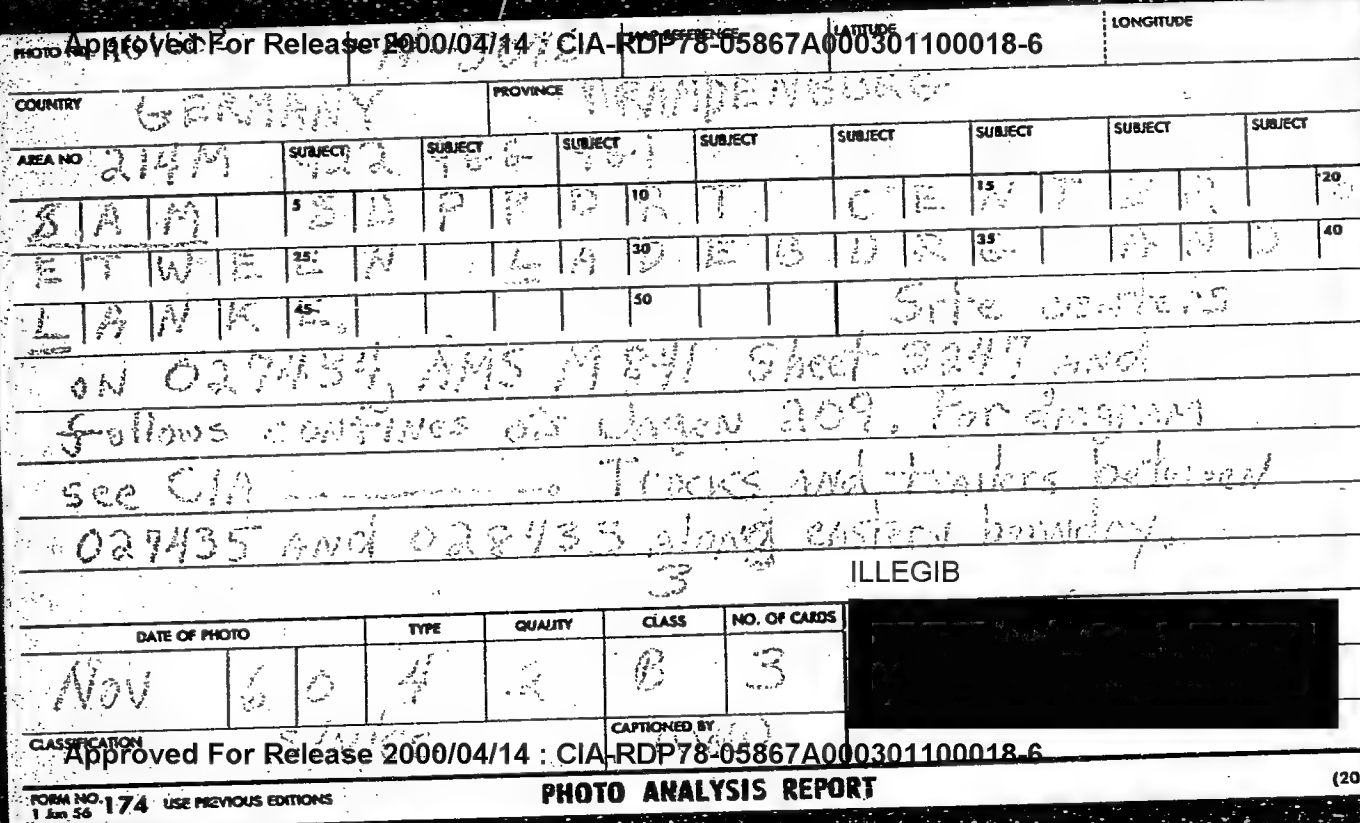 Approved For Release 2000/04/14 : CIA-RDP78-05867A000301100018-6
PHOTO MAP REFERENCE LATITUDE LONGITUDE
COUNTRY GERMANY PROVINCE BRANDENBURG
AREA NO 214M SUBJECT 422 SUBJECT SUBJECT SUBJECT SUBJECT SUBJECT SUBJECT SUBJECT
SAM 5 SUPPORT 10 CENTER 15 20
ETWEEN 25 LADEBURG 30 35 AND 40
LANKE. 45 50 Site centers
ON 027434, AMS M841 Sheet 3247 and
follows confines of Jagen 209. For diagram
see CIA Trucks and trailers between
027435 and 028435 along eastern boundry.
3
ILLEGIB
DATE OF PHOTO TYPE QUALITY CLASS NO. OF CARDS
Nov 60 4 2 B 3
CLASSIFICATION CAPTIONED BY
Approved For Release 2000/04/14 : CIA-RDP78-05867A000301100018-6
FORM NO. 174 USE PREVIOUS EDITIONS PHOTO ANALYSIS REPORT (20
1 Jun 56